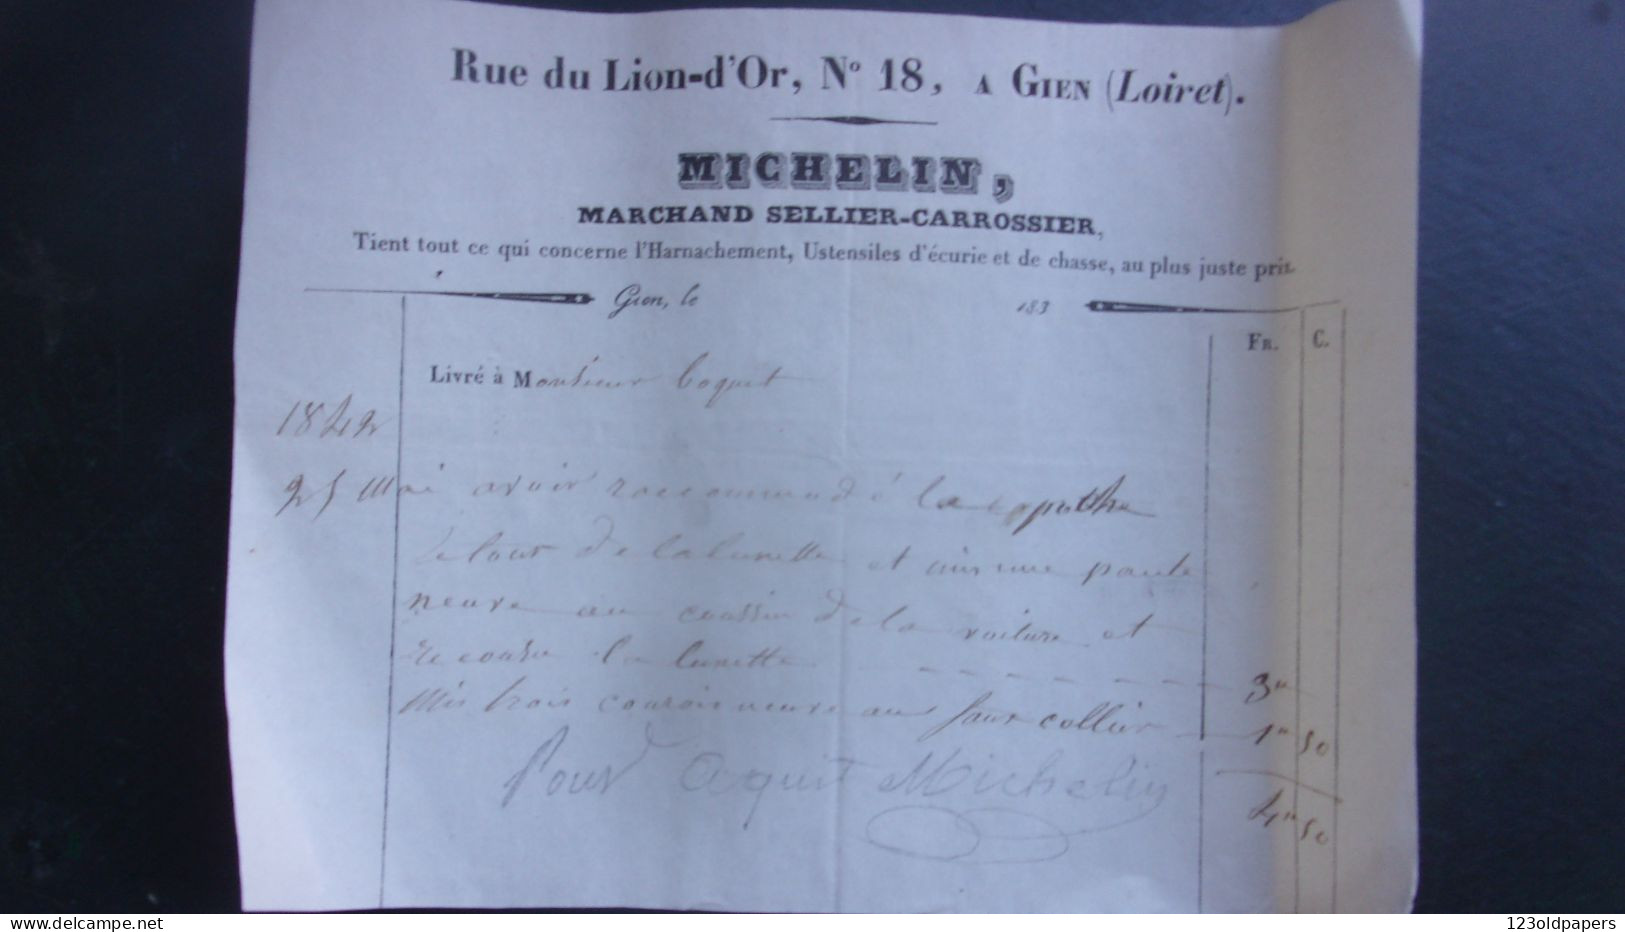 Rue du Lion-d'Or, N° 18, A GIEN (Loiret).
MICHELIN,
MARCHAND SELLIER-CARROSSIER,
Tient tout ce qui concerne l'Harnachement, Ustensiles d'écurie et de chasse, au plus juste prix.
Gien, le 183
FR. C.
Livré à Monsieur Coquet
1842
25 Mai avoir raccommodé la
le tour de la lunette et mis une
neuve au coussin de la voiture et
recousu la lunette 3"
Mis trois couroi neuve au faux collier 1" 50
Pour Aquit Michelin
4" 50
delcampe.net
123oldpapers